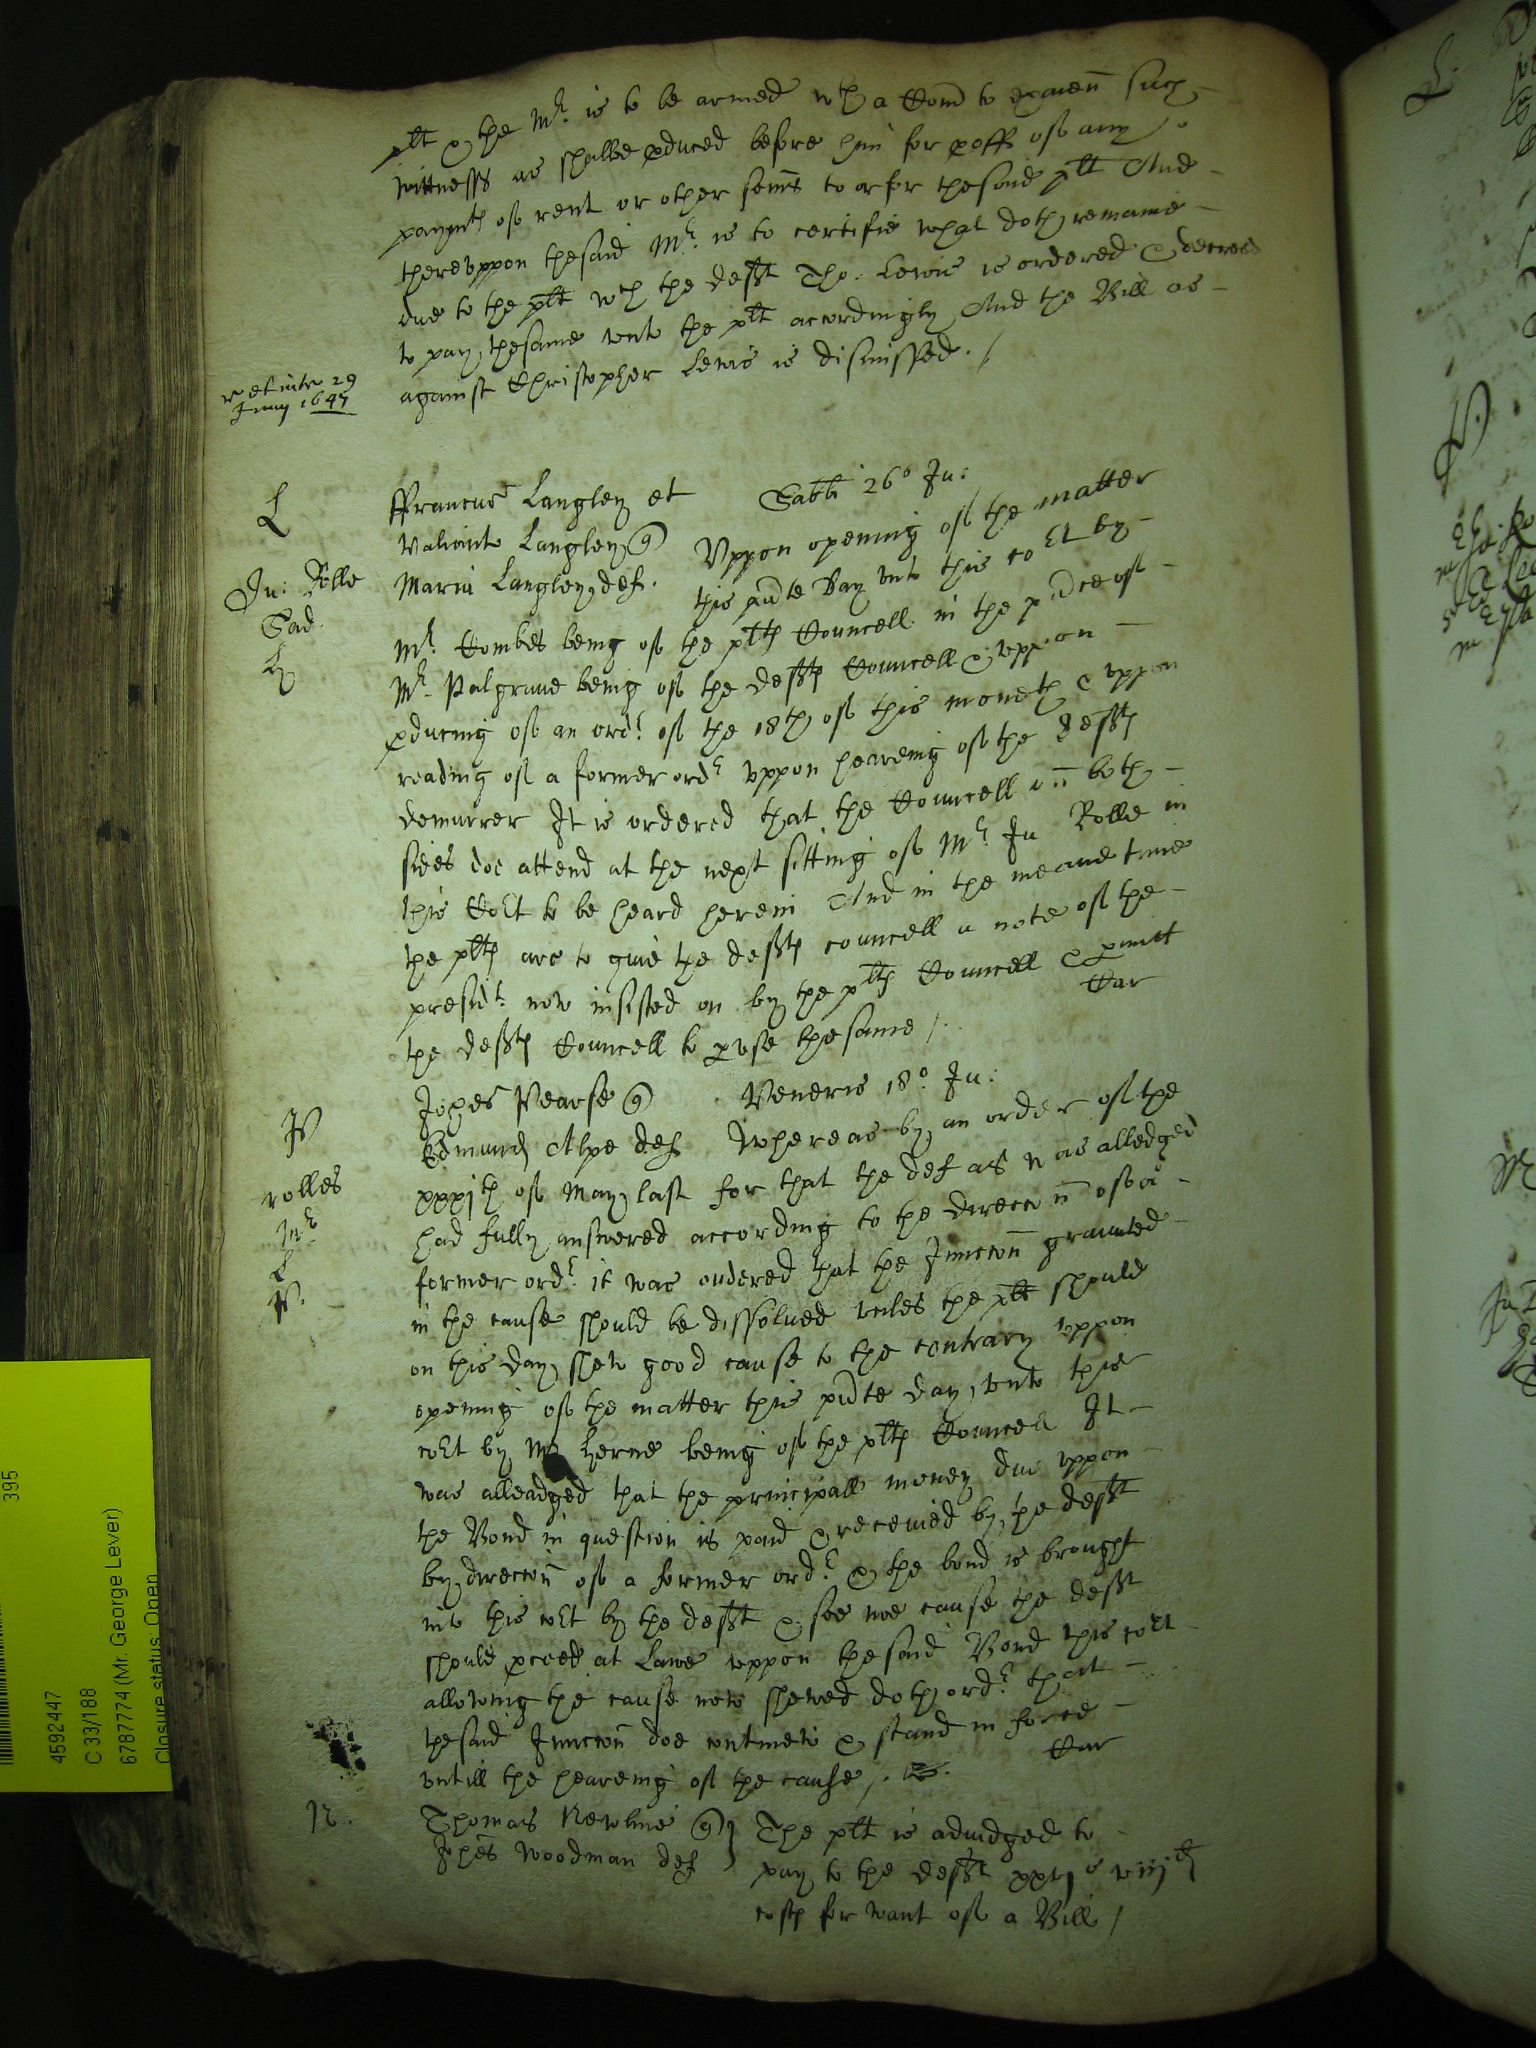 plt & the Mr. is to be armed wth a Com to examen such
wittnesses as shalbe pduced before him for proffe of any
paymts of rent or other somes to or for thesaid plt And
thereuppon thesaid Mr. is to certifie what doth remaine
due to the plt wch the deft Tho: Lewis is ordered & decreed
to pay thesame unto the plt accordingly And the Bill as
against Christopher Lewis is dismissed. /
ret intr 29
Juny 1647
L
ffrancus Langley et
Sabbi 26o Ju:
Valiante Langley q
Uppon opening of the matter
Ju: Rolle
Maria Langley def.
this pnte day unto this co rt by
Sad.
Mr. Combes being of the plts Councell in the pnce of
H
Mr. Palgrave being of the defts Councell & uppon
pducing of an ordr. of the 18th of this moneth & uppon
reading of a former ordr uppon heareing of the defts
demurrer It is ordered that the Councell on both
sides doe attend at the next sitting of Mr Ju Rolle in
this Cort to be heard herein And in the meane time
the plts are to give the defts councell a note of the
presidts. now insisted on by the plts Councell & pmitt
the defts Councell to pvse thesame /.
Car
P
Johes Pearse q
Veneris 18o. Ju:
Edmund Alpe def
Whereas by an order of the
rolles
xxxjth of May last for that the def as was alledged
Mr
had fully answered according to the direccon of a
L
former ordr. it was ordered that the Junccon graunted
P.
in the cause should be dissolved unles the plt should
on this day shew good cause to the contrary uppon
opening of the matter this pnte day unto this
cort by Mr Herne being of the plts Councell It
was alleadged that the principall money due uppon
the Bond in question is paid & received by the deft
by direccon of a former ordr. & the bond is brought
into this cort by the deft & soe noe cause the deft
should pceed at Lawe uppon thesaid Bond this cort
allowing the cause now shewed doth ordr. that
thesaid Junccon doe continew & stand in force
untill the heareing of the cause /.
Car
N.
Thomas Newline q
The plt is adiudged to
Johes Woodman def
pay to the deft xxvjs viijd
costs for want of a Bill /
395
4592447
C 33/188
6787774 (Mr. George Lever)
Closure status: Open